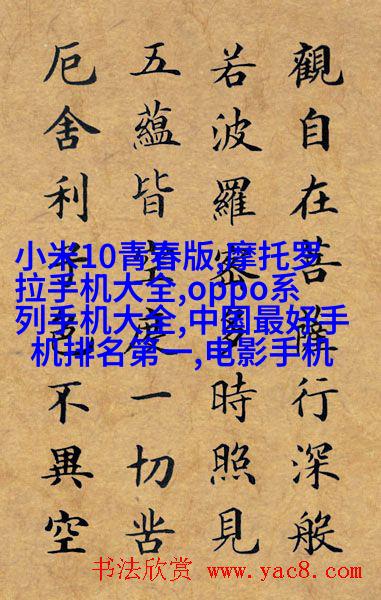 觀自在菩薩行深般
若波羅蜜多時照見
五蘊皆空度一切苦
厄舍利子色不異空
小米10青春版,摩托罗
拉手机大全,oppo系
列手机大全,中国最好手
机排名第一,电影手机
书法欣赏 www.yac8.com